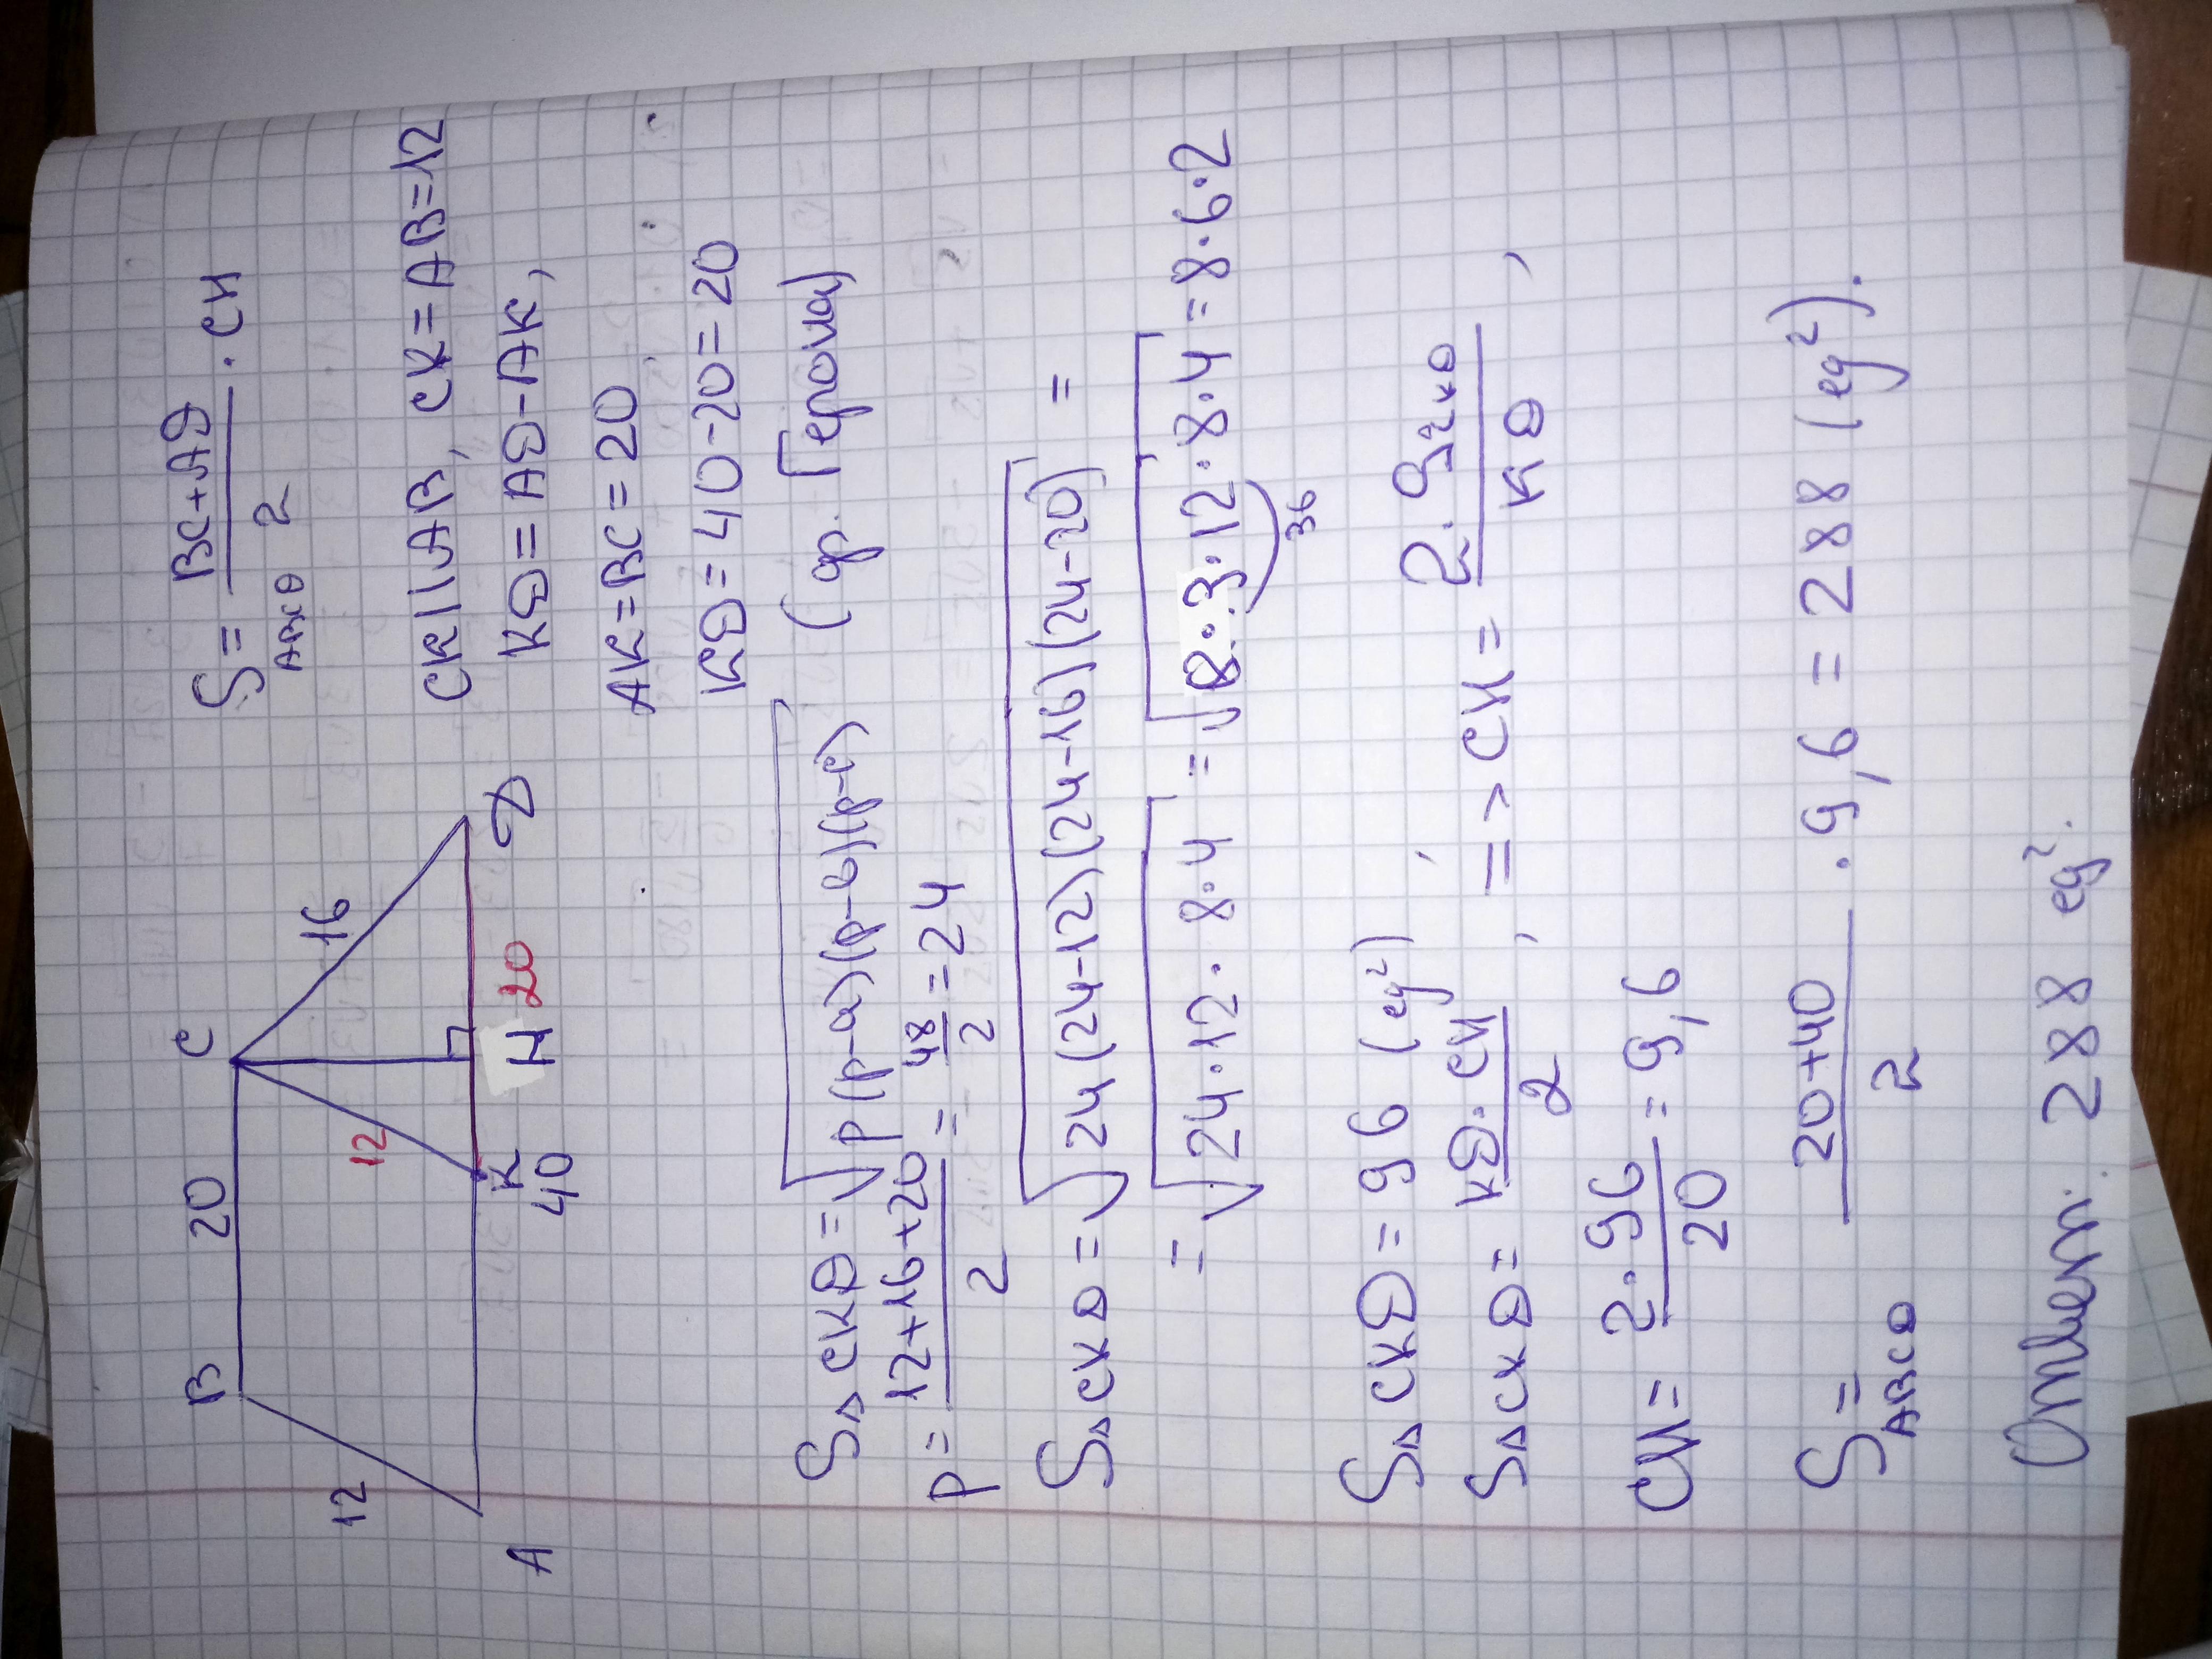 B 20 C
12
12
16
A
K
H 20
D
40
S ABCD = BC+AD / 2 · CH
CK||AB, CK=AB=12
KD=AD-AK,
AK=BC=20
KD=40-20=20
S△CKD=√p(p-a)(p-b)(p-c) (ф. Герона)
p= 12+16+20 / 2 = 48/2 =24
S△CKD=√24(24-12)(24-16)(24-20) =
=√24·12·8·4 =√8·3·12·8·4=8·6·2
36
S△CKD=96 (ед²)
S△CKD= KD·CH / 2, => CH= 2·S CKD / KD,
CH= 2·96 / 20 = 9,6
S ABCD = 20+40 / 2 · 9,6 = 288 (ед²).
Ответ: 288 ед².